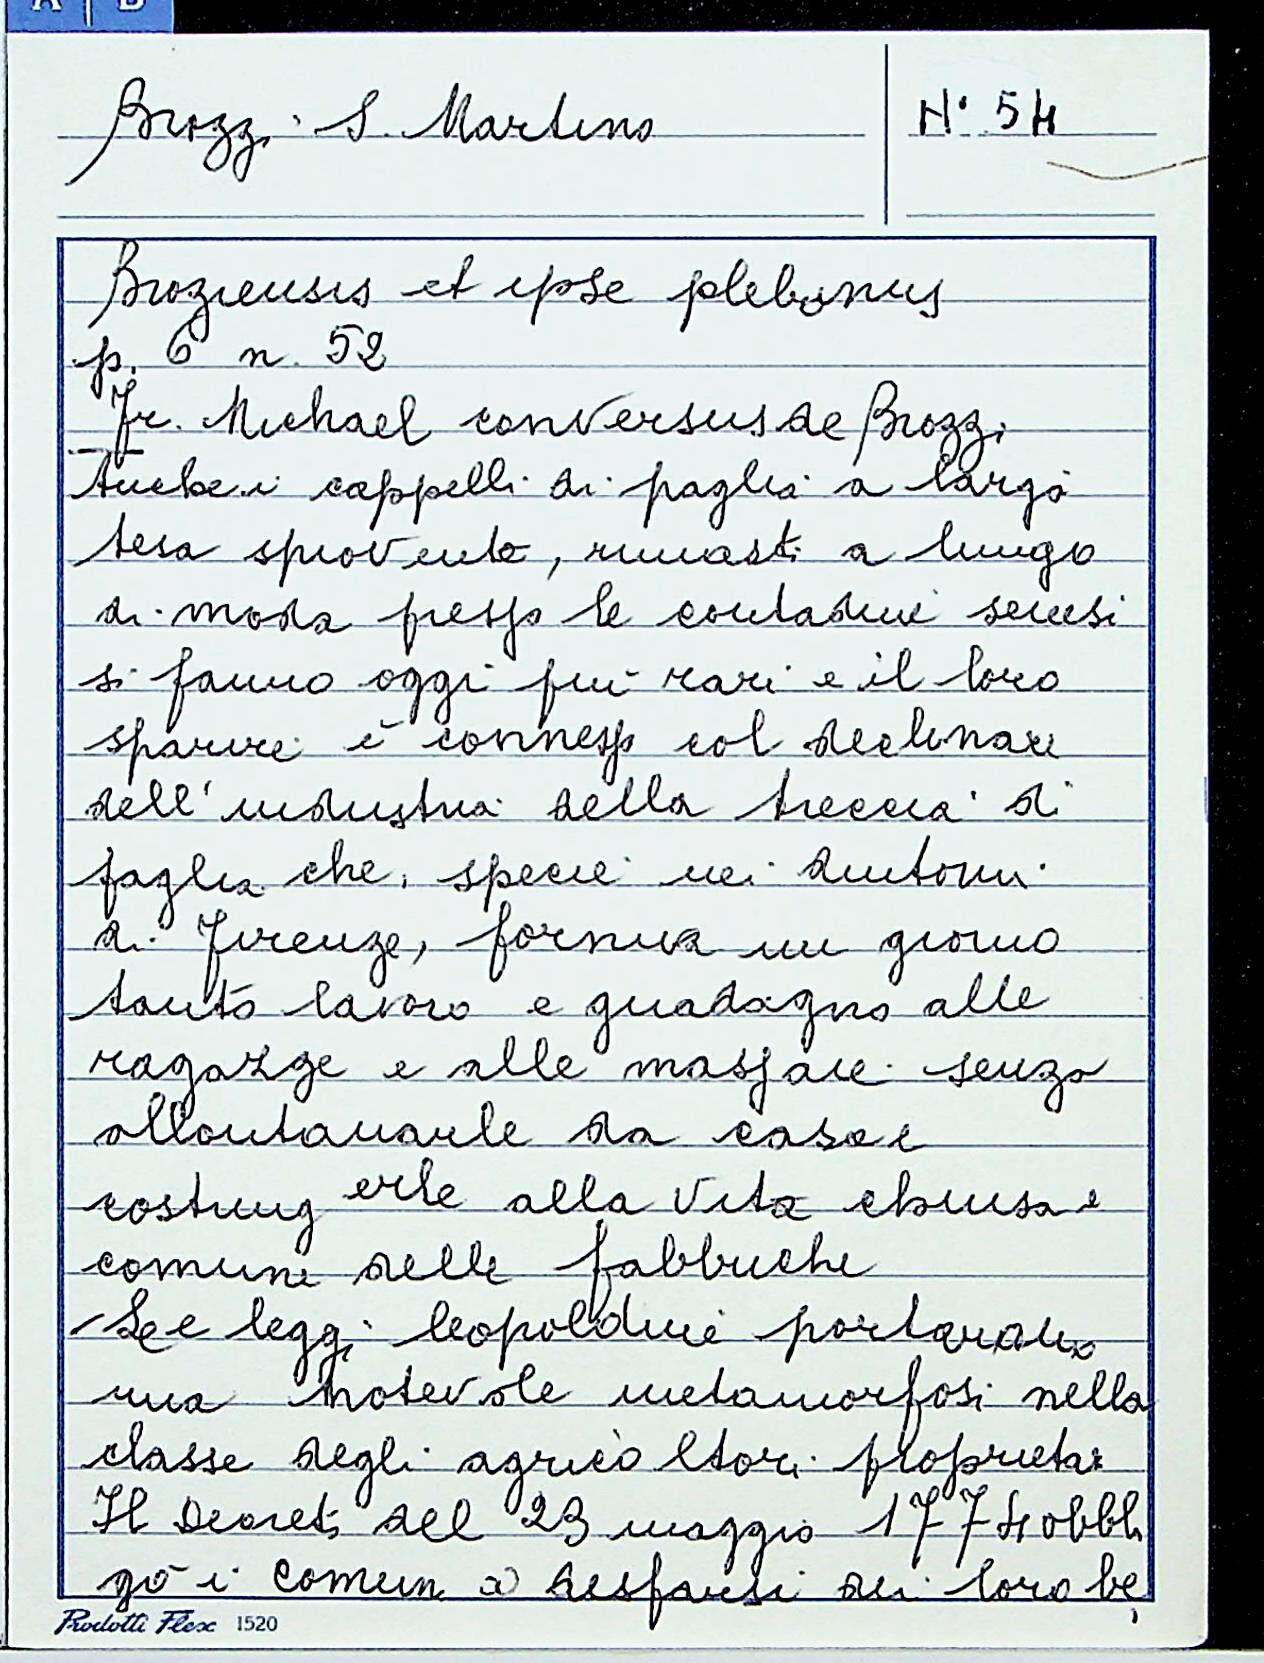 A B
Brozzi S. Martino
N° 54
Broziensis et ipse plebanus
p. 6 n. 52
Fr. Michael conversus de Brozzi
Anche i cappelli di paglia a larga
tesa spiovente, rimasti a lungo
di moda presso le contadine senesi
si fanno oggi più rari e il loro
sparire è connesso col declinare
dell'industria della treccia di
paglia che, specie nei dintorni
di Firenze, forniva un giorno
tanto lavoro e guadagno alle
ragazze e alle massaie senza
allontanarle da casa e
costringerle alla vita chiusa e
comune delle fabbriche
Le leggi leopoldine portarono
una notevole metamorfosi nella
classe degli agricoltori proprietari
Il Decreto del 23 maggio 1774 obbli
gò i comuni a disfarsi dei loro be
Prodotti Flex 1520